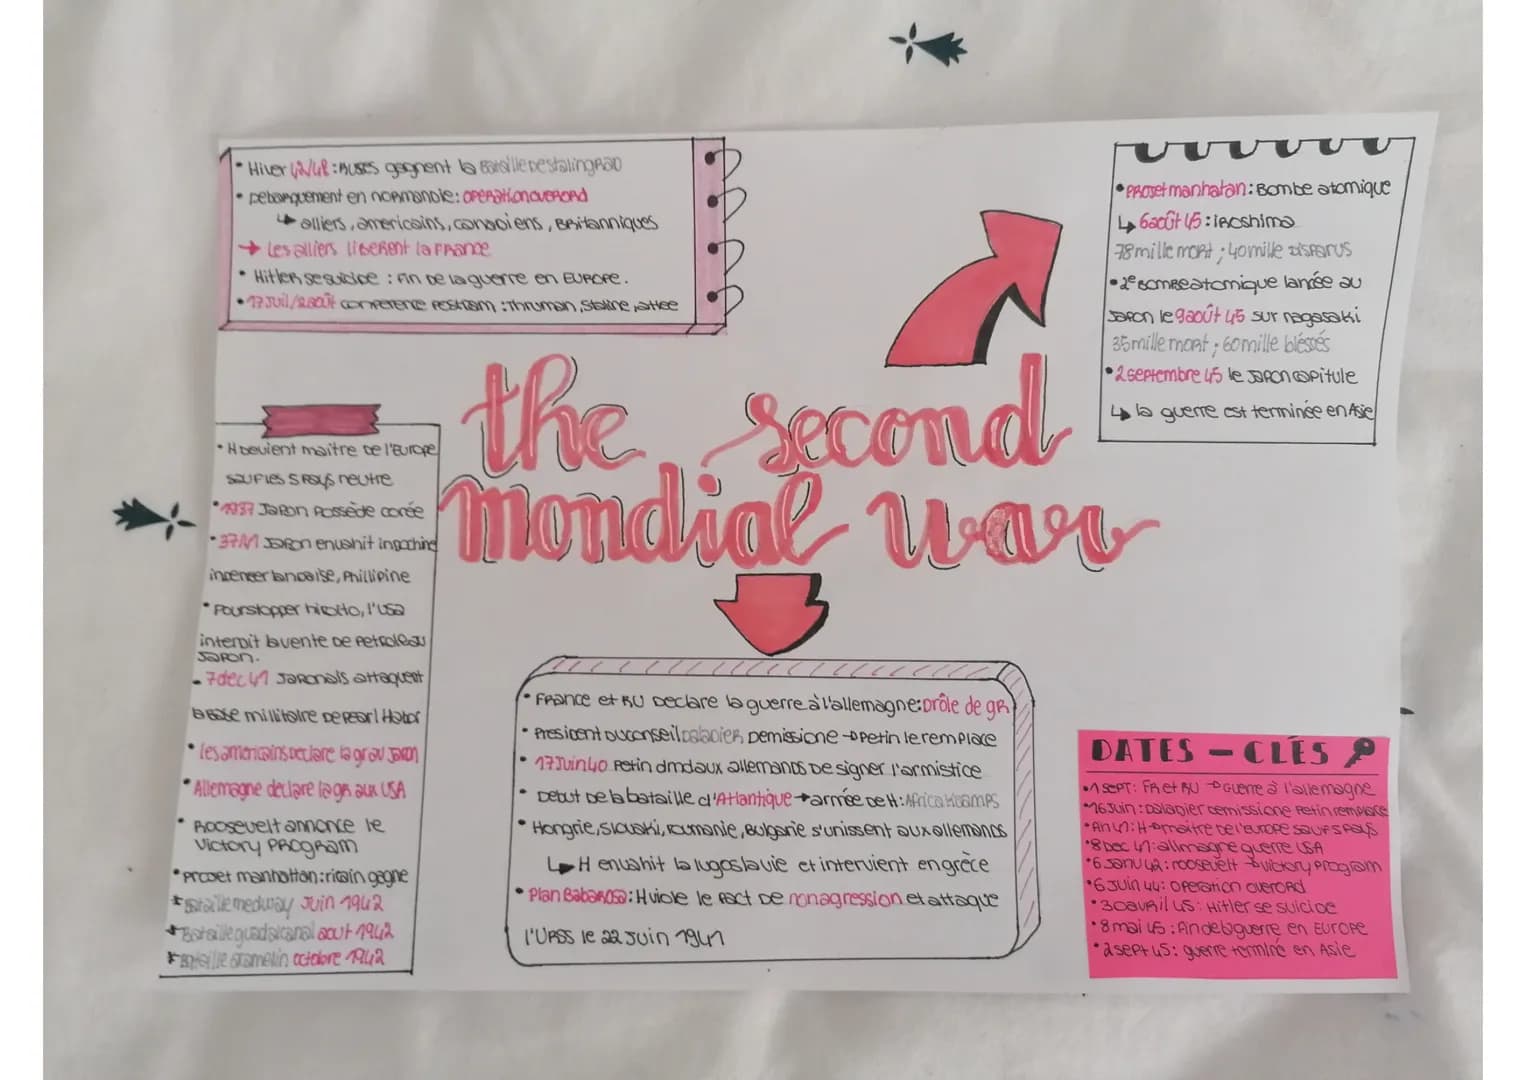 • Hiver 42/48 : RUSES gagnent la Bataille De stalingrad
• Debarquement en normandie : OPERation overord
↳ alliers, americains, canadiens, Britanniques
→ Les alliers liberent la France
• Hitler se suicide : Fin De la guerre en EUROPE.
• 17 Juil/2 août conference Postdam : Thruman, Staline, attlee
the second
mondial war
• PROJET manhatan : Bombe atomique
↳ 6 août 45 : iroshima
78 mille mort ; 40 mille DISPARUS
• 2e Bombe atomique lancée au
JAPON le 9 août 45 sur nagasaki
35 mille mort ; 60 mille bléssés
• 2 septembre 45 le JAPON capitule
↳ la guerre est terminée en Asie
• H Devient maitre De l'Europe
sauf les 5 Pays neutre
• 1937 Japon Possède corée
• 37/41 Japon envahit
Phillipine
• Pour stopper hirotto, l'usa
interdit la vente De Petrole au
JAPON.
- 7 dec 41 JAPONAIS attaquent
la Base millitaire De Pearl Habor
• les americains Declare la gr au Japon
• Allemagne déclare la gR aux USA
• Roosevelt annonce le
Victory PROGRAM
• Procet manhattan : ricain gagne
* Bataille medway Juin 1942
* Bataille guadalcanal aout 1942
* Bataille aramelin octobre 1942
• FRance et RU Declare la guerre à l'allemagne : Drôle de gR
• President Du conseil Daladier Demissione → Petin le remplace
• 17 Juin 40 Petin dmd aux allemands De signer l'armistice
• Debut De la bataille d'Atlantique → armée De H : Africa Koamps
• Hongrie, Slovaki, roumanie, Bulgarie s'unissent aux allemands
↳ H envahit la Iugoslavie et intervient en grèce
• Plan Babarosa : H viole le Pact De non agression et attaque
l'URSS le 22 Juin 1941
DATES - CLÉS
• 1 SEPT : FR et RU → Guerre à l'allemagne
• 16 Juin : Daladier Demissione Petin remplace
• Fin 41 : H → maitre De l'europe sauf 5 Pays
• 8 Dec 41 : allmagne guerre USA
• 6 Janv 42 : roosevelt → victory Program
• 6 Juin 44 : OPERation overord
• 30 avril 45 : Hitler se suicide
• 8 mai 45 : fin de la guerre en EUROPE
• 2 sept 45 : guerre terminé en Asie